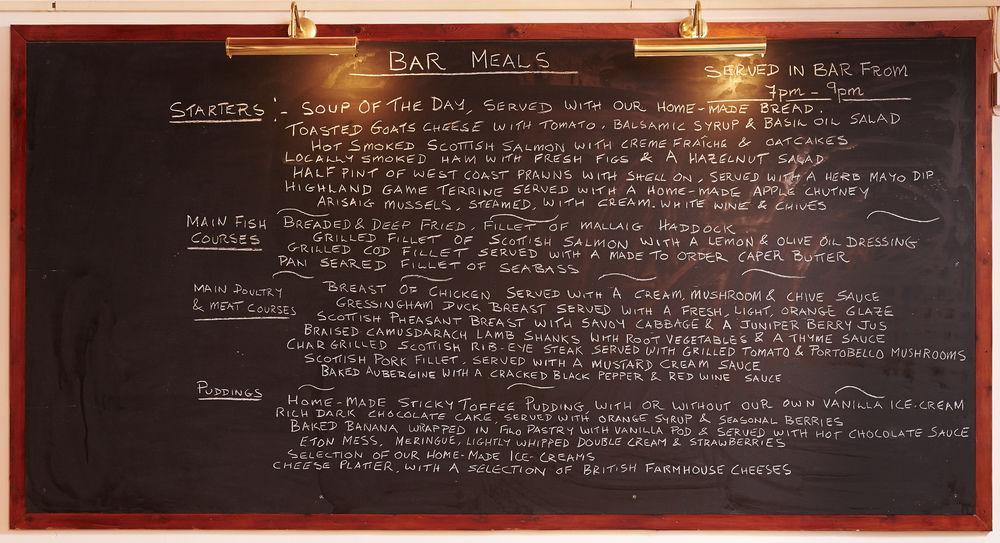 BAR MEALS
SERVED IN BAR FROM
7pm - 9pm
STARTERS :- SOUP OF THE DAY, SERVED WITH OUR HOME-MADE BREAD.
TOASTED GOATS CHEESE WITH TOMATO, BALSAMIC SYRUP & BASIL OIL SALAD
HOT SMOKED SCOTTISH SALMON WITH CREME FRAÎCHE & OATCAKES
LOCALLY SMOKED HAM WITH FRESH FIGS & A HAZELNUT SALAD
HALF PINT OF WEST COAST PRAWNS WITH SHELL ON, SERVED WITH A HERB MAYO DIP
HIGHLAND GAME TERRINE SERVED WITH A HOME-MADE APPLE CHUTNEY
ARISAIG MUSSELS, STEAMED, WITH CREAM. WHITE WINE & CHIVES
MAIN FISH COURSES
BREADED & DEEP FRIED, FILLET OF MALLAIG HADDOCK
GRILLED FILLET OF SCOTTISH SALMON WITH A LEMON & OLIVE OIL DRESSING
GRILLED COD FILLET SERVED WITH A MADE TO ORDER CAPER BUTTER
PAN SEARED FILLET OF SEABASS
MAIN POULTRY
& MEAT COURSES
BREAST OF CHICKEN SERVED WITH A CREAM, MUSHROOM & CHIVE SAUCE
GRESSINGHAM DUCK BREAST SERVED WITH A FRESH, LIGHT, ORANGE GLAZE
SCOTTISH PHEASANT BREAST WITH SAVOY CABBAGE & A JUNIPER BERRY JUS
BRAISED CAMUSDARACH LAMB SHANKS WITH ROOT VEGETABLES & A THYME SAUCE
CHAR GRILLED SCOTTISH RIB-EYE STEAK SERVED WITH GRILLED TOMATO & PORTOBELLO MUSHROOMS
SCOTTISH PORK FILLET, SERVED WITH A MUSTARD CREAM SAUCE
BAKED AUBERGINE WITH A CRACKED BLACK PEPPER & RED WINE SAUCE
PUDDINGS
HOME-MADE STICKY TOFFEE PUDDING, WITH OR WITHOUT OUR OWN VANILLA ICE-CREAM
RICH DARK CHOCOLATE CAKE, SERVED WITH ORANGE SYRUP & SEASONAL BERRIES
BAKED BANANA WRAPPED IN FILO PASTRY WITH VANILLA POD & SERVED WITH HOT CHOCOLATE SAUCE
ETON MESS, MERINGUE, LIGHTLY WHIPPED DOUBLE CREAM & STRAWBERRIES
SELECTION OF OUR HOME-MADE ICE-CREAMS
CHEESE PLATTER, WITH A SELECTION OF BRITISH FARMHOUSE CHEESES